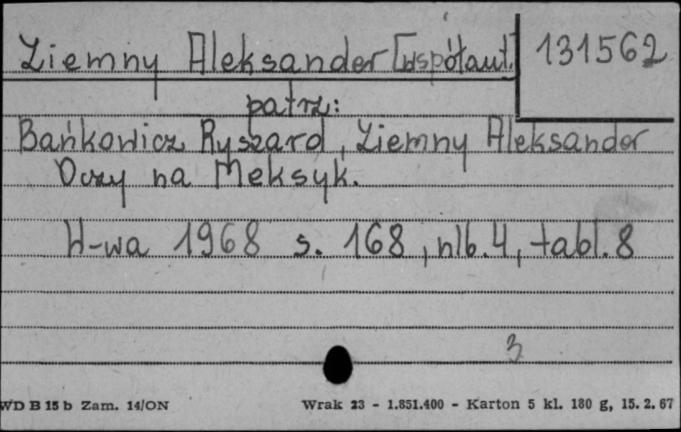 Ziemny Aleksander [współaut.] 131562
patrz:
Bańkowicz Ryszard, Ziemny Aleksander
Oczy na Meksyk.
W-wa 1968 s. 168, nlb. 4, tabl. 8
3
WD B 15 b Zam. 14/ON Wrak 23 - 1.851.400 - Karton 5 kl. 180 g, 15. 2. 67